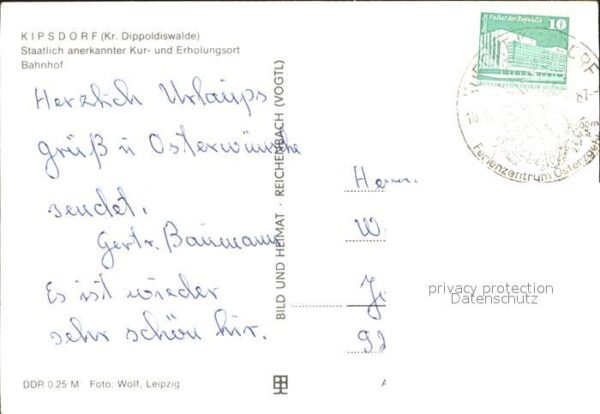 KIPSDORF (Kr. Dippoldiswalde)
Staatlich anerkannter Kur- und Erholungsort
Bahnhof
Herzlich Urlaups
grüß u Osterwünsche
sendet.
Gertr. Baumann
Es ist wieder
sehr schön hir.
DDR 0.25 M Foto: Wolf, Leipzig
BILD UND HEIMAT · REICHENBACH (VOGTL)
Berlin Palast der Republik
10
87-
Ferienzentrum Osterzgebi
Herrn
W.
92
A
privacy protection
Datenschutz